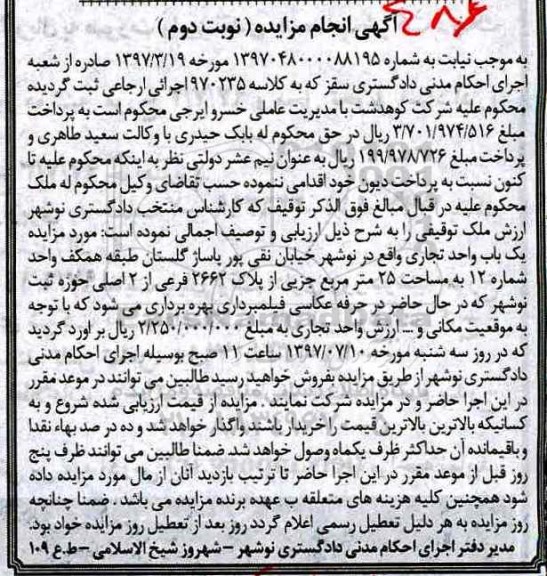 ۴۸۶
آگهی انجام مزایده ( نوبت دوم )
به موجب نیابت به شماره ۱۳۹۷۰۴۸۰۰۰۰۸۸۱۹۵ مورخه ۱۳۹۷/۳/۱۹ صادره از شعبه
اجرای احکام مدنی دادگستری سقز که به کلاسه ۹۷۰۲۳۵ اجرائی ارجاعی ثبت گردیده
محکوم علیه شرکت کوهدشت با مدیریت عاملی خسرو ایرجی محکوم است به پرداخت
مبلغ ۳/۷۰۱/۹۷۴/۵۱۶ ریال در حق محکوم له بابک حیدری با وکالت سعید طاهری و
پرداخت مبلغ ۱۹۹/۹۷۸/۷۲۶ ریال به عنوان نیم عشر دولتی نظر به اینکه محکوم علیه تا
کنون نسبت به پرداخت دیون خود اقدامی ننموده حسب تقاضای وکیل محکوم له ملک
محکوم علیه در قبال مبالغ فوق الذکر توقیف که کارشناس منتخب دادگستری نوشهر
ارزش ملک توقیفی را به شرح ذیل ارزیابی و توصیف اجمالی نموده است: مورد مزایده
یک باب واحد تجاری واقع در نوشهر خیابان نقی پور پاساژ گلستان طبقه همکف واحد
شماره ۱۲ به مساحت ۲۵ متر مربع جزیی از پلاک ۲۶۶۲ فرعی از ۲ اصلی حوزه ثبت
نوشهر که در حال حاضر در حرفه عکاسی فیلمبرداری بهره برداری می شود که با توجه
به موقعیت مکانی و ... ارزش واحد تجاری به مبلغ ۲/۲۵۰/۰۰۰/۰۰۰ ریال بر اورد گردید
که در روز سه شنبه مورخه ۱۳۹۷/۰۷/۱۰ ساعت ۱۱ صبح بوسیله اجرای احکام مدنی
دادگستری نوشهر از طریق مزایده بفروش خواهد رسید طالبین می توانند در موعد مقرر
در این اجرا حاضر و در مزایده شرکت نمایند . مزایده از قیمت ارزیابی شده شروع و به
کسانیکه بالاترین بالاترین قیمت را خریدار باشند واگذار خواهد شد و ده در صد بهاء نقدا
و باقیمانده آن حداکثر ظرف یکماه وصول خواهد شد. ضمنا طالبین می توانند ظرف پنج
روز قبل از موعد مقرر در این اجرا حاضر تا ترتیب بازدید آنان از مال مورد مزایده داده
شود همچنین کلیه هزینه های متعلقه ب عهده برنده مزایده می باشد . ضمنا چنانچه
روز مزایده به هر دلیل تعطیل رسمی اعلام گردد روز بعد از تعطیل روز مزایده خواد بود.
مدیر دفتر اجرای احکام مدنی دادگستری نوشهر – شهروز شیخ الاسلامی – ط.ع ۱۰۹